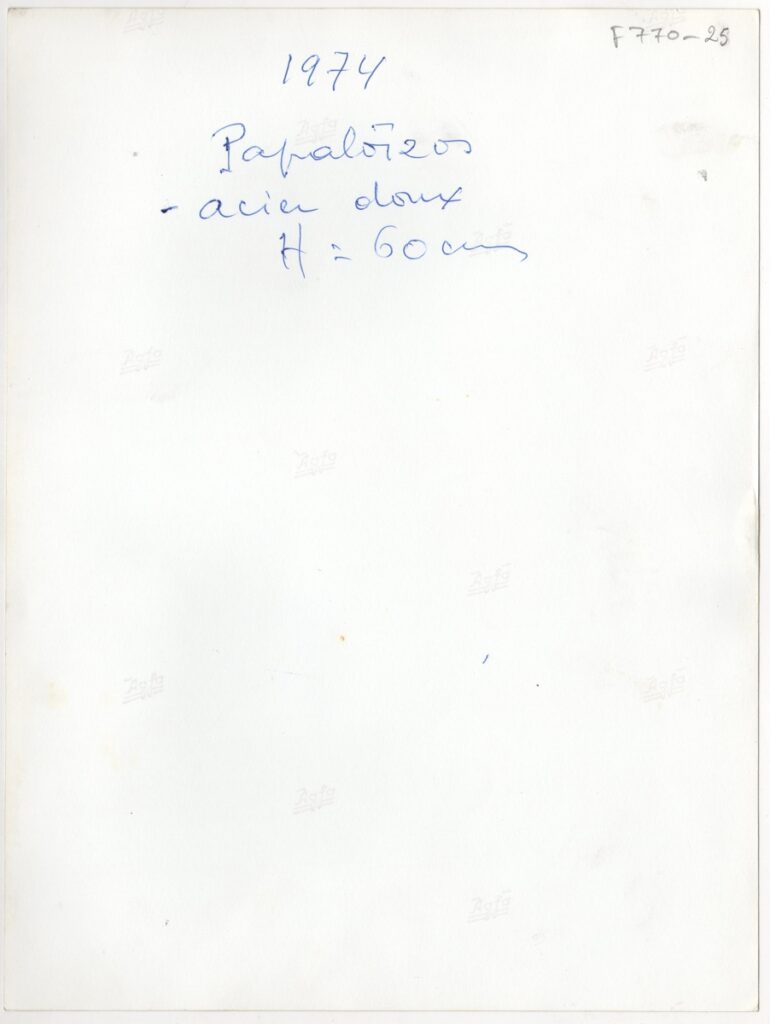 F770-25
1974
Papaloïzos
- acier doux
H = 60 cm
Agfa
Agfa
Agfa
Agfa
Agfa
Agfa
Agfa
Agfa
Agfa
Agfa